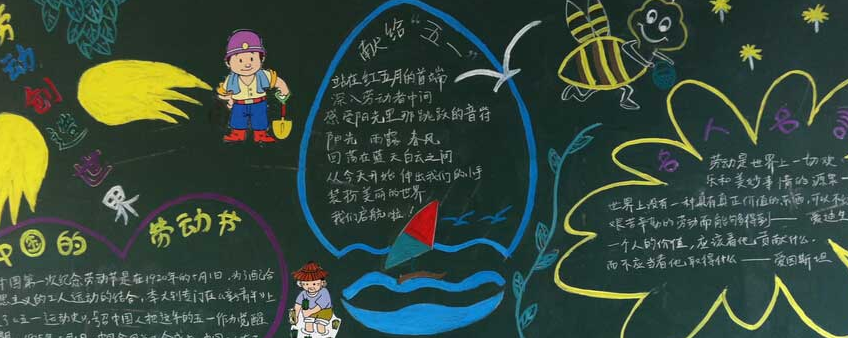 劳动创世界
中国的 劳动节
中国第一次纪念劳动节是在1920年的5月1日，为了配合
思主义的工人运动的结合，李大钊专门在《新青年》上
了《五一运动史》，号召中国人把这年的五一作为觉醒
献给“五一”
站在红五月的首端
深入劳动者中间
感受阳光里那跳跃的音符
阳光 雨露 春风
回荡在蓝天白云之间
从今天开始 伸出我们的手
装扮美丽的世界
我们启航啦！
名人名言
劳动是世界上一切欢
乐和美妙事情的源泉
世界上没有一种具有真正价值的东西，可以不
艰苦辛勤的劳动而能够得到——爱迪生
一个人的价值，应该看他贡献什么，
而不应当看他取得什么——爱因斯坦